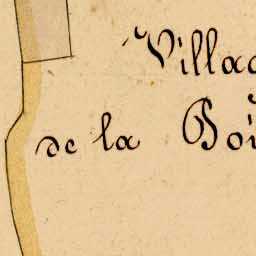 Villag
de la Boi